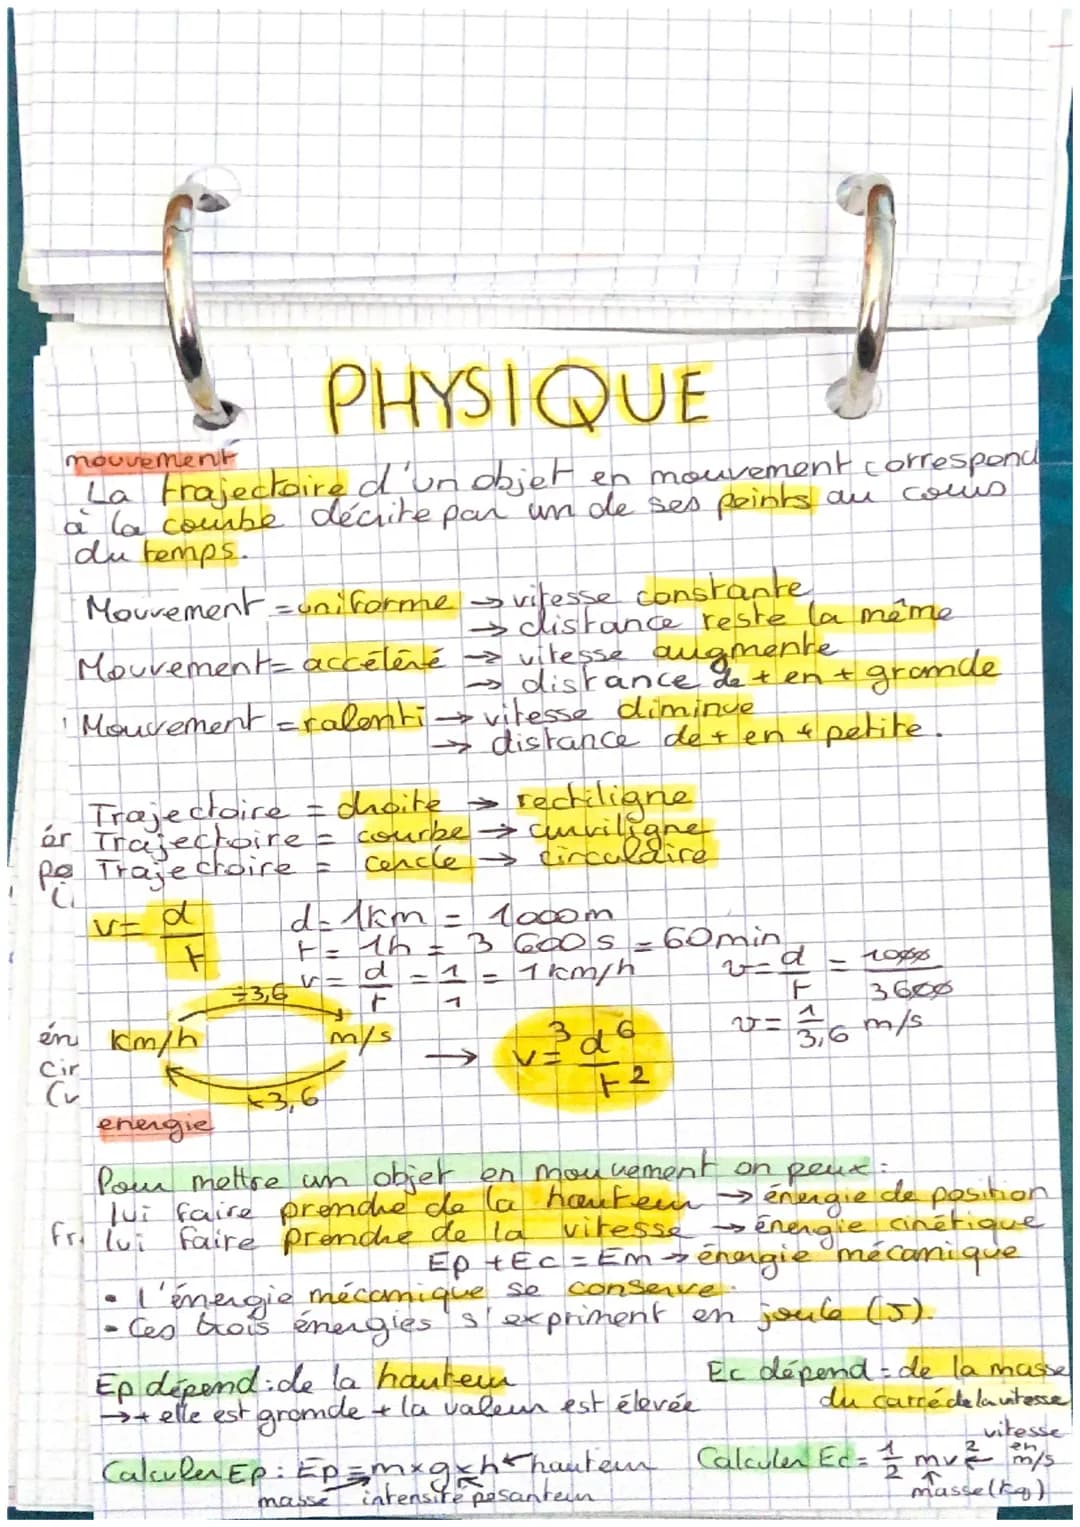 PHYSIQUE
mouvement
La trajectoire d'un objet en mouvement correspond
à la courbe décrite par un de ses points au cours
du temps.
Mouvement = uniforme → vitesse constante
→ distance reste la même
Mouvement = accéléré → vitesse augmente
→ distance de + en + grande
Mouvement = ralenti → vitesse diminue
→ distance de + en + petite.
Trajectoire = droite → rectiligne
Trajectoire = courbe → curviligne
Trajectoire = cercle → circulaire
v = d/t
d = 1km = 1000m
t = 1h = 3 600s = 60min
v = d/t = 1/1 = 1 km/h
v = d/t = 1000/3600
v = 1/3,6 m/s
÷3,6
km/h m/s → v=³ d⁶/t²
×3,6
energie
Pour mettre un objet en mouvement on peux :
lui faire prendre de la hauteur → énergie de position
lui faire prendre de la vitesse → énergie cinétique
Ep + Ec = Em → énergie mécanique
• l'énergie mécanique se conserve.
• Ces trois énergies s'expriment en joule (J).
Ep dépend : de la hauteur
→ + elle est grande + la valeur est élevée
Ec dépend = de la masse
du carré de la vitesse
Calculer Ep : Ep = m×g×h ← hauteur
masse intensité pesanteur
Calculer Ec = 1/2 mv² ← vitesse en m/s
masse (kg)
ér
pe
én
cir
Fr